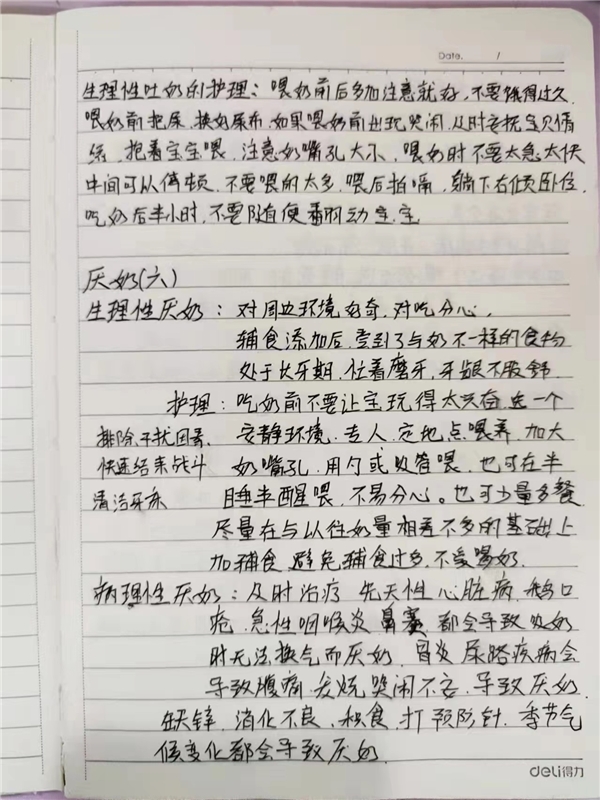 Date. /
生理性吐奶的护理：喂奶前后多加注意就好，不要饿得过久
喂奶前把尿、换好尿布，如果喂奶前出现哭闹，及时安抚宝贝情
绪，抱着宝宝喂，注意奶嘴孔大小，喂奶时不要太急太快
中间可以停顿，不要喂的太多，喂后拍嗝，躺下右倾卧位，
吃奶后半小时，不要随便翻动宝宝
厌奶(六)
生理性厌奶：对周边环境好奇，对吃分心，
辅食添加后，尝到了与奶不一样的食物
处于长牙期，忙着磨牙，牙龈不服舒
护理：吃奶前不要让宝玩得太兴奋，选一个
排除干扰因素、安静环境，专人，定地点喂养，加大
快速结束战斗 奶嘴孔，用勺或吸管喂，也可在半
清洁牙床 睡半醒喂，不易分心。也可少量多餐
尽量在与以往奶量相差不多的基础上
加辅食，避免辅食过多，不爱喝奶
病理性厌奶：及时治疗 先天性心脏病，鹅口
疮，急性咽喉炎 鼻塞 都会导致吸奶
时无法换气而厌奶，胃炎 尿路疾病会
导致腹痛，发烧哭闹不安，导致厌奶
缺锌，消化不良，积食，打预防针，季节气
候变化都会导致厌奶
deli得力